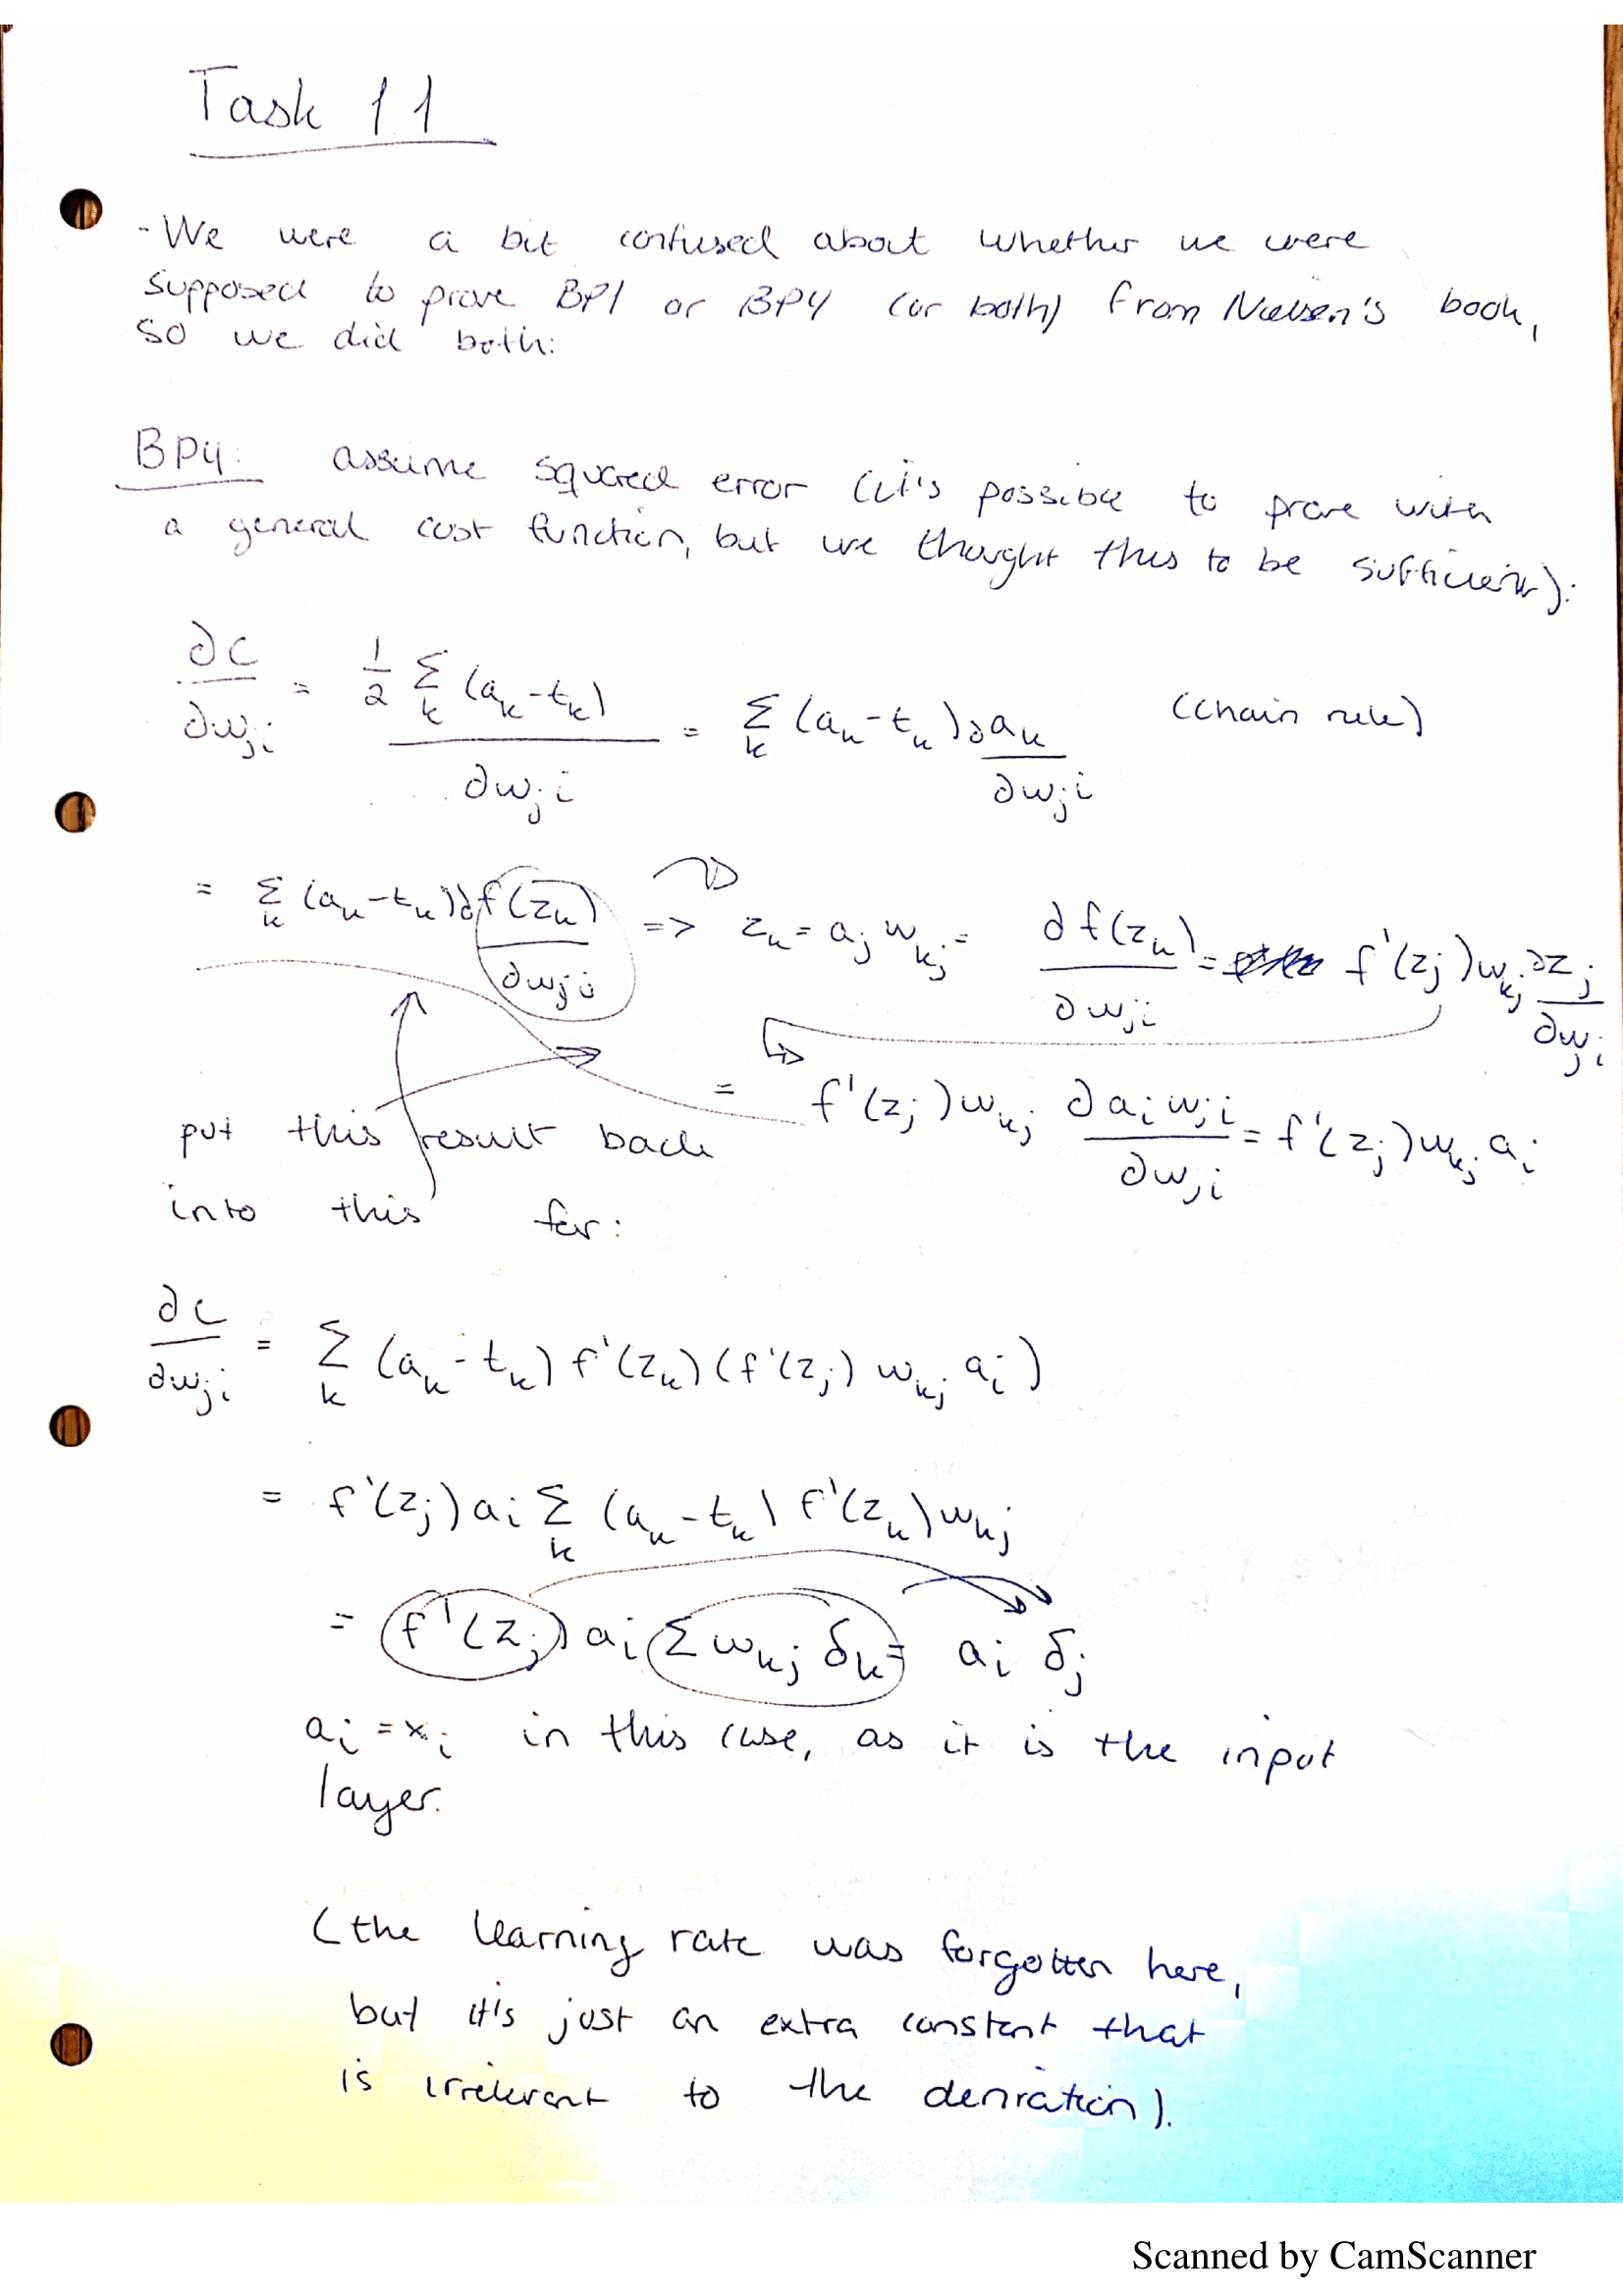 Task 11
- We were a bit confused about whether we were
supposed to prove BP1 or BP4 (or both) from Nielsen's book,
so we did both:
BP4: assume squared error (it's possible to prove with
a general cost function, but we thought this to be sufficient):
∂C/∂w_ji = 1/2 Σ_k (a_k - t_k) / ∂w_ji = Σ_k (a_k - t_k) ∂a_k/∂w_ji (chain rule)
= Σ_k (a_k - t_k) ∂f(z_k)/∂w_ji => z_k = a_j w_kj = ∂f(z_k)/∂w_ji = f'(z_j) w_kj ∂z_j/∂w_ji
= f'(z_j) w_kj ∂a_i w_ji/∂w_ji = f'(z_j) w_kj a_i
put this result back
into this for:
∂C/∂w_ji = Σ_k (a_k - t_k) f'(z_k) (f'(z_j) w_kj a_i)
= f'(z_j) a_i Σ_k (a_k - t_k) f'(z_k) w_kj
= f'(z_j) a_i Σ w_kj δ_k = a_i δ_j
a_i = x_i in this case, as it is the input
layer.
(the learning rate was forgotten here,
but it's just an extra constant that
is irrelevant to the derivation).
Scanned by CamScanner